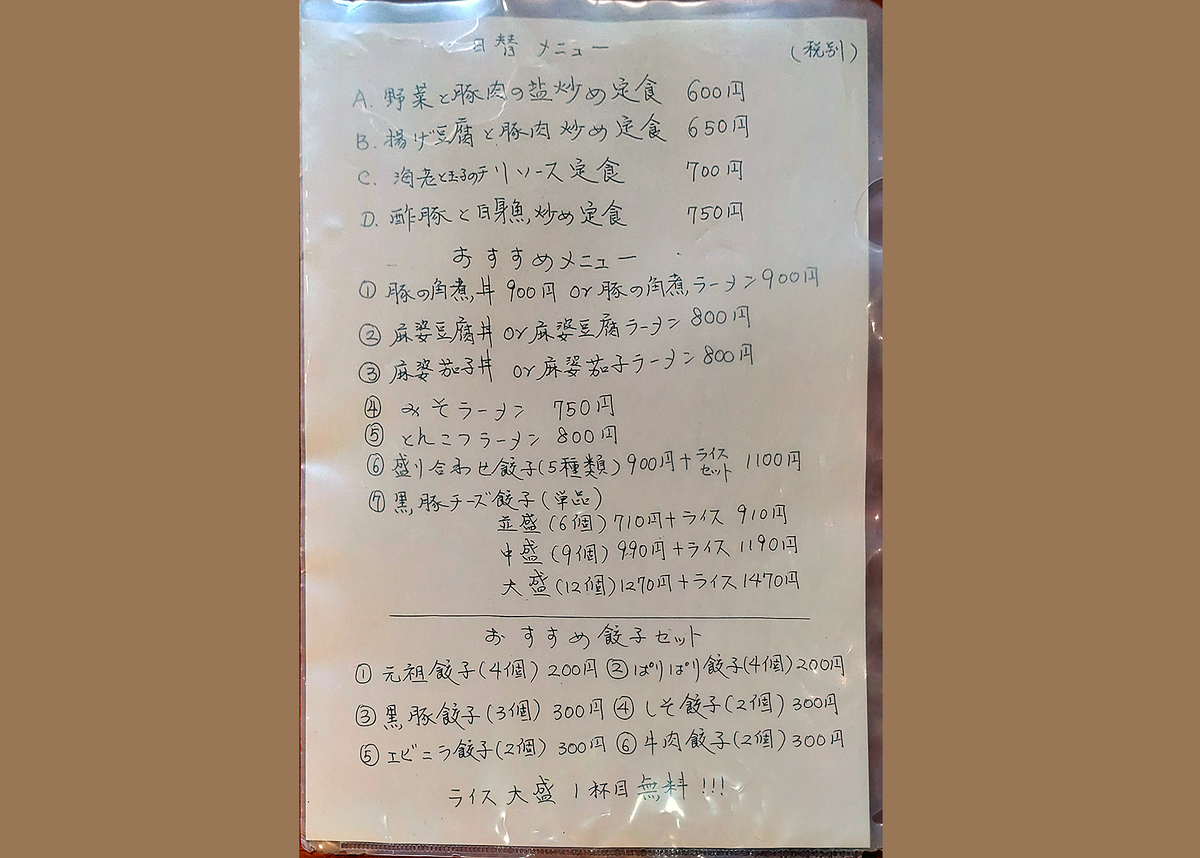 日替 メニュー (税別)
A. 野菜と豚肉の塩炒め定食 600円
B. 揚げ豆腐と豚肉炒め定食 650円
C. 海老と玉子のチリソース定食 700円
D. 酢豚と白身魚炒め定食 750円
おすすめメニュー
① 豚の角煮丼 900円 or 豚の角煮ラーメン 900円
② 麻婆豆腐丼 or 麻婆豆腐ラーメン 800円
③ 麻婆茄子丼 or 麻婆茄子ラーメン 800円
④ みそラーメン 750円
⑤ とんこつラーメン 800円
⑥ 盛り合わせ餃子(5種類) 900円+ライスセット 1100円
⑦ 黒豚チーズ餃子(単品)
並盛(6個) 710円+ライス 910円
中盛(9個) 990円+ライス 1190円
大盛(12個) 1270円+ライス 1470円
おすすめ餃子セット
① 元祖餃子(4個) 200円 ② ぱりぱり餃子(4個) 200円
③ 黒豚餃子(3個) 300円 ④ しそ餃子(2個) 300円
⑤ エビニラ餃子(2個) 300円 ⑥ 牛肉餃子(2個) 300円
ライス大盛 1杯目無料!!!